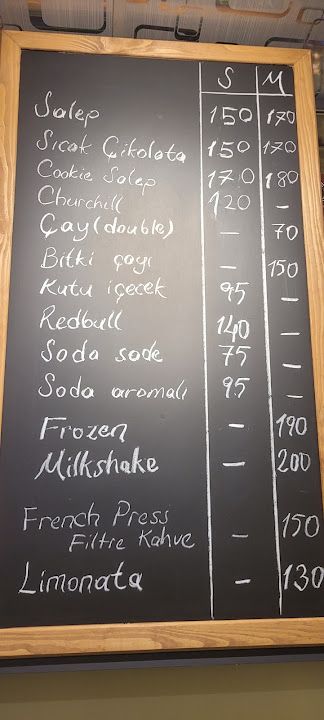 S M
Salep 150 170
Sıcak Çikolata 150 170
Cookie Salep 170 180
Churchill 120 -
Çay (double) - 70
Bitki çayı - 150
Kutu içecek 95 -
Redbull 140 -
Soda sade 75 -
Soda aromalı 95 -
Frozen - 190
Milkshake - 200
French Press
Filtre Kahve - 150
Limonata - 130